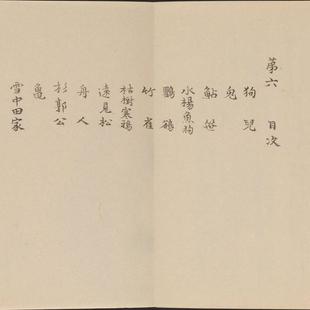 第六 目次
狗児
兎
鮎笹
水楊魚狗
鸚鵡
竹雀
枯樹寒鴉
遠見松
舟人
杉郭公
亀
雪中田家